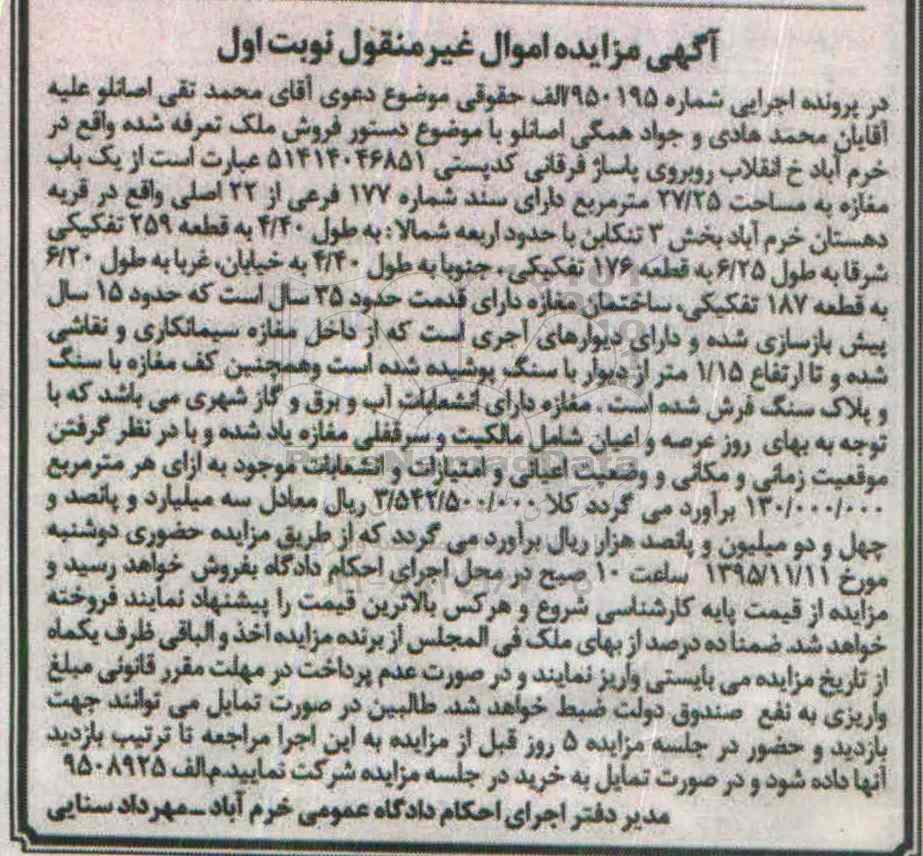 آگهی مزایده اموال غیرمنقول نوبت اول
در پرونده اجرایی شماره ۷۹۵۰۱۹۵/الف حقوقی موضوع دعوی آقای محمد تقی اصانلو علیه
آقایان محمد هادی و جواد همگی اصانلو با موضوع دستور فروش ملک تعرفه شده واقع در
خرم آباد خ انقلاب روبروی پاساژ فرقانی کدپستی ۵۱۴۱۴۰۴۶۸۵۱ عبارت است از یک باب
مغازه به مساحت ۲۷/۲۵ مترمربع دارای سند شماره ۱۷۷ فرعی از ۲۲ اصلی واقع در قریه
دهستان خرم آباد بخش ۳ تنکابن با حدود اربعه شمالا: به طول ۴/۴۰ به قطعه ۲۵۹ تفکیکی
شرقا به طول ۶/۲۵ به قطعه ۱۷۶ تفکیکی، جنوبا به طول ۴/۴۰ به خیابان، غربا به طول ۶/۲۰
به قطعه ۱۸۷ تفکیکی، ساختمان مغازه دارای قدمت حدود ۳۵ سال است که حدود ۱۵ سال
پیش بازسازی شده و دارای دیوارهای آجری است که از داخل مغازه سیمانکاری و نقاشی
شده و تا ارتفاع ۱/۱۵ متر از دیوار با سنگ پوشیده شده است وهمچنین کف مغازه با سنگ
و پلاک سنگ فرش شده است. مغازه دارای انشعابات آب و برق و گاز شهری می باشد که با
توجه به بهای روز عرصه و اعیان شامل مالکیت و سرقفلی مغازه یاد شده و با در نظر گرفتن
موقعیت زمانی و مکانی و وضعیت اعیانی و امتیازات و انشعابات موجود به ازای هر مترمربع
۱۳۰/۰۰۰/۰۰۰ برآورد می گردد کلا ۳/۵۴۲/۵۰۰/۰۰۰ ریال معادل سه میلیارد و پانصد و
چهل و دو میلیون و پانصد هزار ریال برآورد می گردد که از طریق مزایده حضوری دوشنبه
مورخ ۱۳۹۵/۱۱/۱۱ ساعت ۱۰ صبح در محل اجرای احکام دادگاه بفروش خواهد رسید و
مزایده از قیمت پایه کارشناسی شروع و هرکس بالاترین قیمت را پیشنهاد نمایند فروخته
خواهد شد. ضمنا ده درصد از بهای ملک فی المجلس از برنده مزایده اخذ و الباقی ظرف یکماه
از تاریخ مزایده می بایستی واریز نمایند و در صورت عدم پرداخت در مهلت مقرر قانونی مبلغ
واریزی به نفع صندوق دولت ضبط خواهد شد. طالبین در صورت تمایل می توانند جهت
بازدید و حضور در جلسه مزایده ۵ روز قبل از مزایده به این اجرا مراجعه تا ترتیب بازدید
آنها داده شود و در صورت تمایل به خرید در جلسه مزایده شرکت نمایید.م/الف ۹۵۰۸۹۲۵
مدیر دفتر اجرای احکام دادگاه عمومی خرم آباد ـ مهرداد سنایی